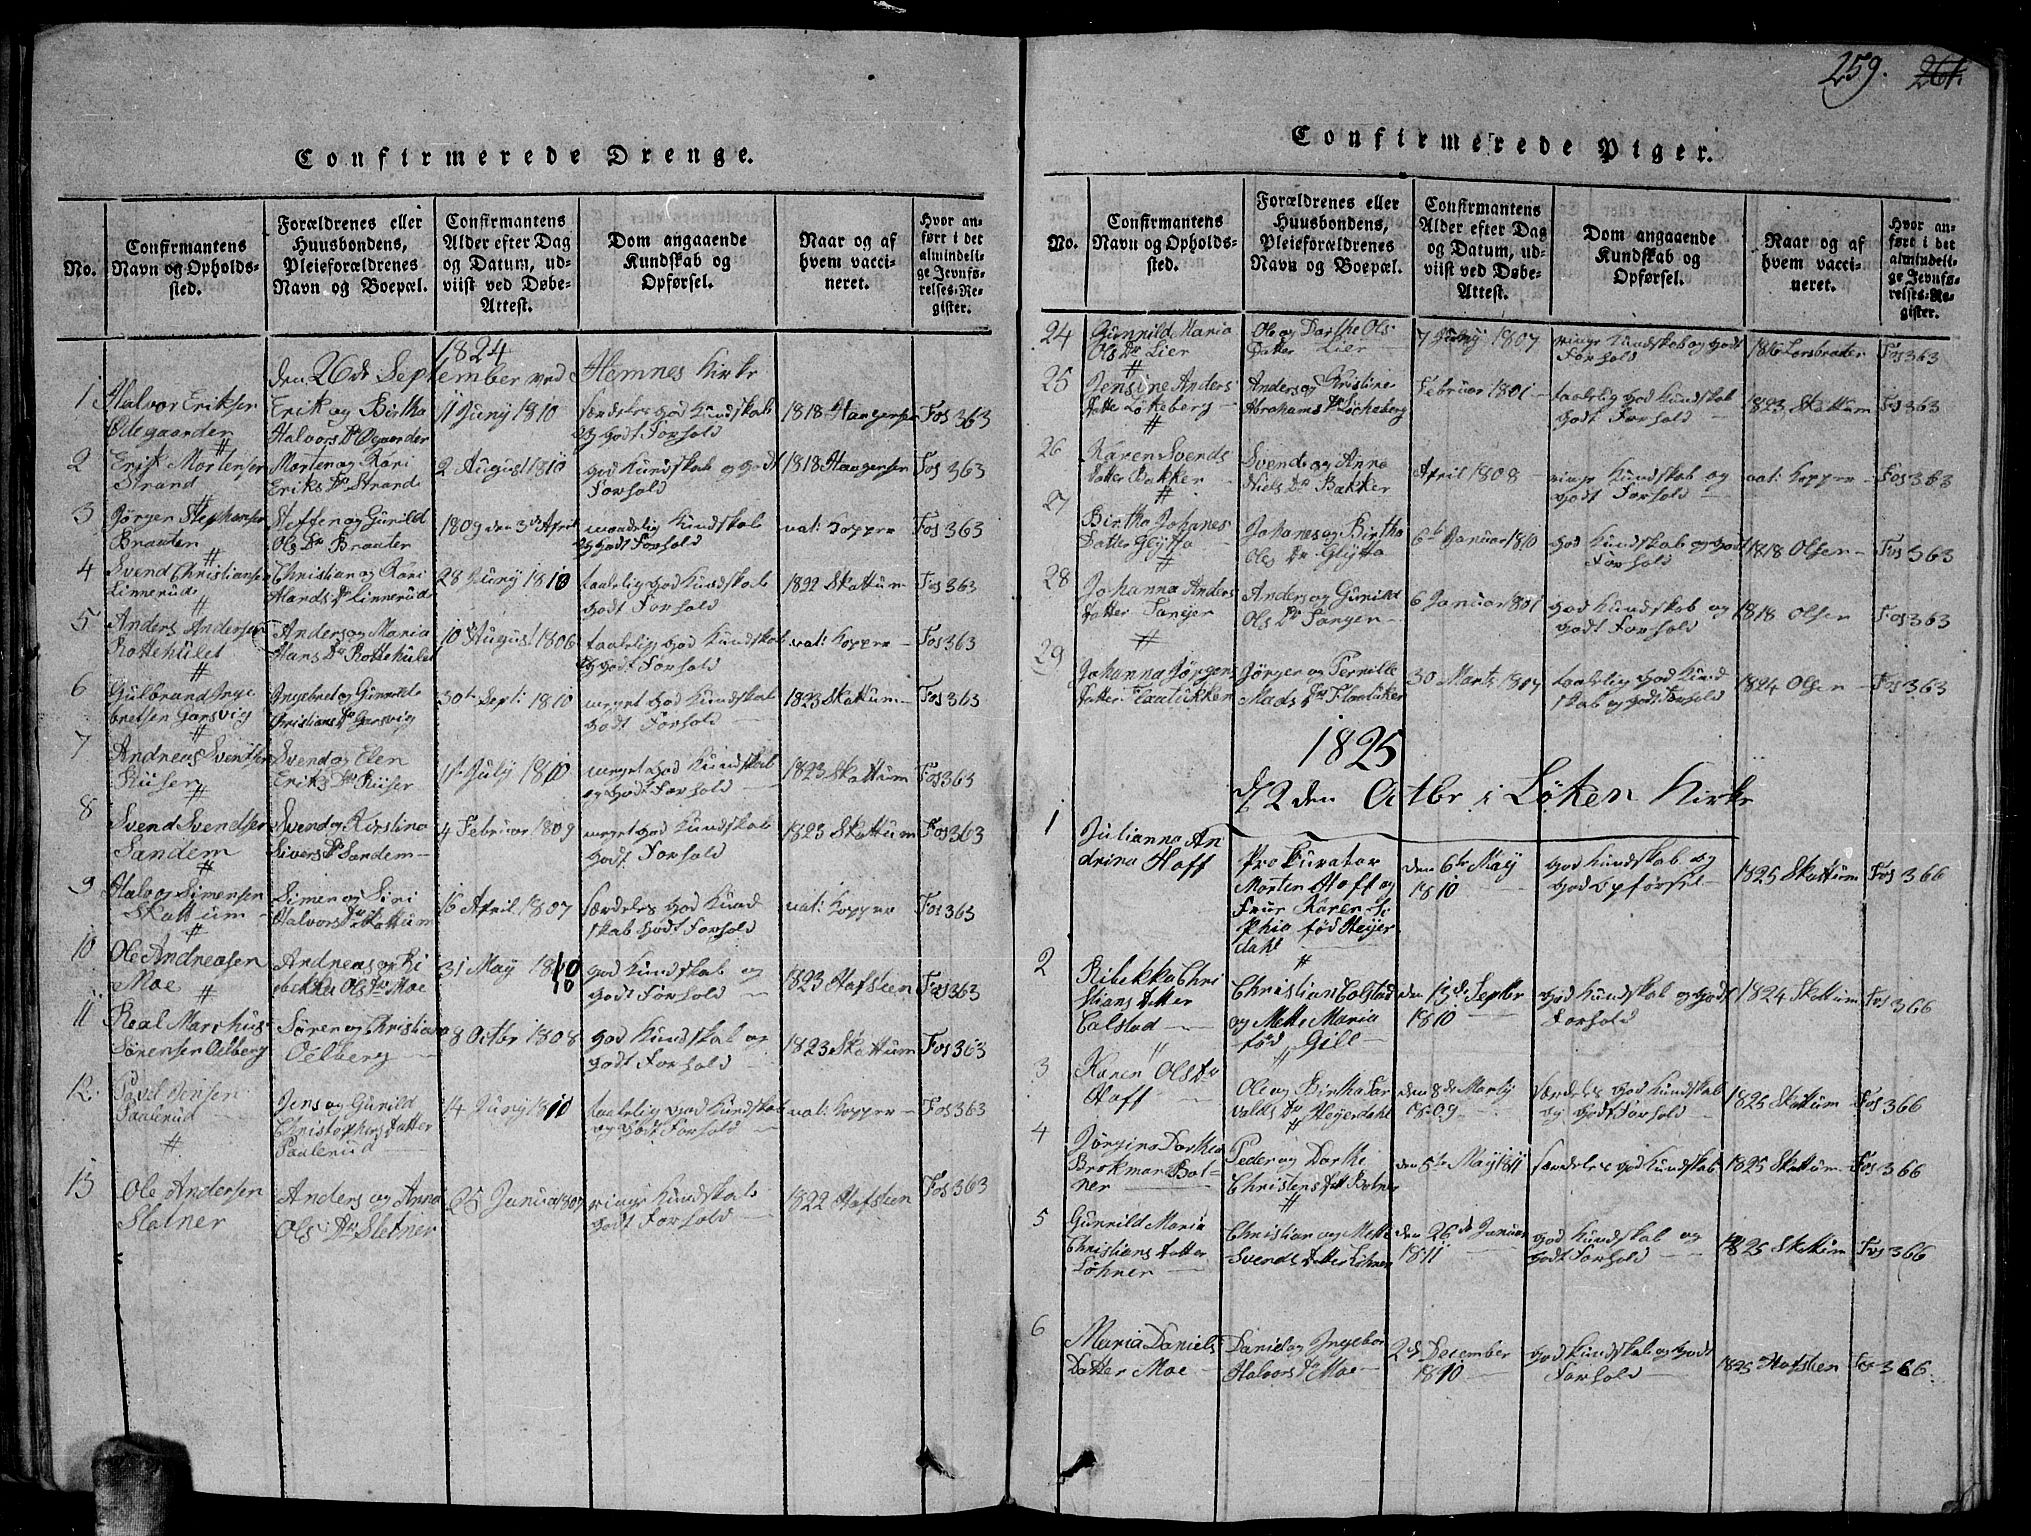 259. 261.
Confirmerede Drenge.
No.
Confirmantens
Navn og Opholds-
sted.
Forældrenes eller
Huusbondens,
Pleieforældrenes
Navn og Boepæl.
Confirmantens
Alder efter Dag
og Datum, ud-
viist ved Døbe-
Attest.
Dom angaaende
Kundskab og
Opførsel.
Naar og af
hvem vacci-
neret.
Hvor an-
ført i det
almindeli-
ge Jevnfø-
relses-Re-
gister.
1824
den 26de September ved Hemnes Kirke
1 Halvor Eriksen
Ødegaarden
Erik og Birtha
Halvors Dr Øgaarden
11 Juny 1810
særdeles god Kundskab
og godt Forhold
1818 Haagensen
Fos 363
2 Erik Mortensen
Strand
Morten og Kari
Eriks Dr Strand
2 August 1810
god Kundskab og godt
Forhold
1818 Haagensen
Fos 363
3 Jørgen Stephansen
Braaten
Steffen og Gunild
Ols Dr Braaten
1809 den 3de April
maadelig Kundskab
og godt Forhold
nat: Kopper
Fos 363
4 Svend Christiansen
Linnerud
Christian og Kari
Hands Dr Linnerud
28 Juny 1810
taalelig god Kundskab
godt Forhold
1822 Skattum
Fos 363
5 Anders Andersen
Rottehulet
Anders og Maria
Hans Dr Rottehulet
10 August 1806
taalelig god Kundskab
og godt Forhold
nat: Kopper
Fos 363
6 Gulbrand Inge
bretsen Garsvig
Ingebret og Gunnilde
Christians Dr Garsvig
30te Sept: 1810
meget god Kundskab
godt Forhold
1823 Skattum
Fos 363
7 Andreas Svendsen
Riiser
Svend og Elen
Eriks Dr Riiser
1st July 1810
meget god Kundskab
og godt Forhold
1823 Skattum
Fos 363
8 Svend Svendsen
Sandem
Svend og Kirstina
Sivers Dr Sandem
4 Februar 1809
meget god Kundskab
godt Forhold
1823 Skattum
Fos 363
9 Halvo Simensen
Skattum
Simen og Siri
Halvors Dr Skattum
16 April 1807
særdeles god Kund
skab godt Forhold
nat: Kopper
Fos 363
10 Ole Andreasen
Moe
Andreas og Ri
bekka Ols Dr Moe
31 May 1810
10
god Kundskab og
godt Forhold
1823 Hofsteen
Fos 363
11 Real Marchus
Sørensen Oelberg
Søren og Christian
Oelberg
8 Octbr 1808
god Kundskab og
godt Forhold
1823 Skattum
Fos 363
12 Povel Jensen
Paalerud
Jens og Gunild
Christophers Datter
Paalerud
14 Juny 1810
taalelig god Kundskab
og godt Forhold
nat: Kopper
Fos 363
13 Ole Andersen
Sletner
Anders og Anna
Ols Dr Sletner
25 Januar 1807
ringe Kundskab
godt Forhold
1822 Hofsteen
Fos 363
Confirmerede Piger.
No.
Confirmantens
Navn og Opholds-
sted.
Forældrenes eller
Huusbondens,
Pleieforældrenes
Navn og Boepæl.
Confirmantens
Alder efter Dag
og Datum, ud-
viist ved Døbe-
Attest.
Dom angaaende
Kundskab og
Opførsel.
Naar og af
hvem vacci-
neret.
Hvor an-
ført i det
almindeli-
ge Jevnfø-
relses-Re-
gister.
24 Gunnild Maria
Ols Dr Lier
Ole og Dorthe Ols
Datter Lier
7 Juny 1807
ringe Kundskab og godt
Forhold
1816 Lorsbraaten
Fos 363
25 Jensine Anders
Datter Løkeberg
Anders og Kristine
Abrahams Dr Løcheberg
Februar 1801
taalelig god Kundskab
godt Forhold
1823 Skattum
Fos 363
26 Karen Svends
Datter Bakker
Svend og Anna
Niels Dr Bakker
April 1808
ringe Kundskab og
godt Forhold
nat: Kopper
Fos 363
27 Birtha Johanes
Datter Gløtta
Johanes og Birtha
Ols Dr Gløtta
6te Januar 1810
god Kundskab og godt
Forhold
1818 Olsen
Fos 363
28 Johanna Anders
Datter Tangen
Anders og Gunild
Ols Dr Tangen
6 Januar 1801
god Kundskab og
godt Forhold
1818 Olsen
Fos 363
29 Johanna Jørgen
Datter Flaatükken
Jørgen og Pernille
Mads Dr Flaatükken
30 Marts 1807
taalelig god Kund
skab og godt Forhold
1824 Olsen
Fos 363
1825
d/ 2den Octbr i Løken Kirke
1 Julianna An
drina Hoff
Prokurator
Morten Hoff og
Frue Karen So
phia fød Heyer
dahl
den 6te May
1810
god Kundskab og
god Opførsel
1825 Skattum
Fos 366
2 Ribekka Chri
stians Datter
Calstad
Christian Calstad
og Mette Maria
fød Gill
den 13de Septbr
1810
god Kundskab og godt
Forhold
1824 Skattum
Fos 366
3 Karen Ols Dr
Hoff
Ole og Birtha Tar
valds Dr Heyerdahl
den 8de Marty
1809
særdeles god Kundskab
og godt Forhold
1825 Skattum
Fos 366
4 Jørgine Dorthea
Brokman Bol-
ner
Peder og Dorthe
Christens Dtt Bolner
den 5te May 1811
særdeles god Kundskab
1825 Skattum
Fos 366
5 Gunnild Maria
Christians Datter
Løhner
Christian og Mette
Svends Datter Løhner
den 26de Januar
1811
god Kundskab og
godt Forhold
1825 Skattum
Fos 366
6 Maria Daniels
Datter Moe
Daniel og Ingebor
Halvors Dr Moe
2de December
1810
god Kundskab og godt
Forhold
1825 Hofsteen
Fos 366